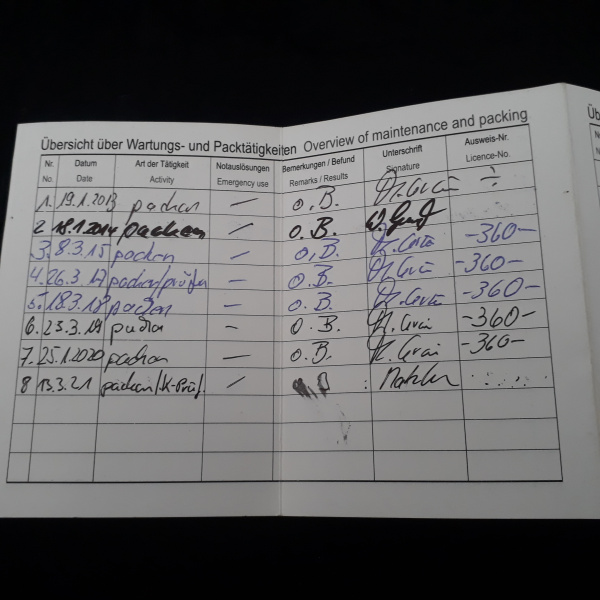 Übersicht über Wartungs- und Packtätigkeiten Overview of maintenance and packing
Nr. Datum Art der Tätigkeit Notauslösungen Bemerkungen / Befund Unterschrift Ausweis-Nr.
No. Date Activity Emergency use Remarks / Results Signature Licence-No.
1. 19.1.2013 packen — o.B. ÷
2 18.1.2014 packen — o.B.
3. 8.3.15 packen — o.B. -360-
4. 26.3.17 packen/prüfen — o.B. -360-
5. 18.3.18 packen — o.B. -360-
6. 23.3.19 packen - o.B. -360-
7. 25.1.2020 packen — o.B. -360-
8 13.3.21 packen/.K-Prüf. /
Üb